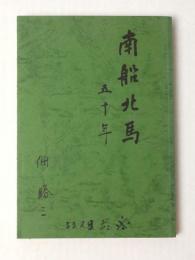 南船北馬
五十年
佃勝三